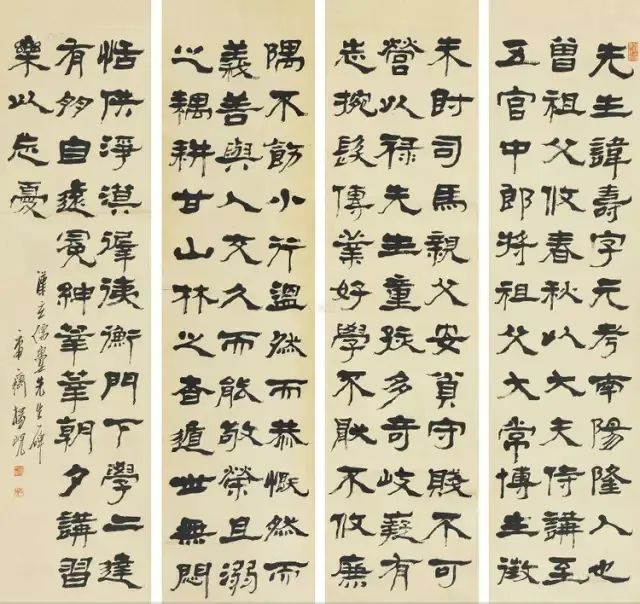 先生諱壽字元考南陽隆人也
曾祖父攸春秋以大夫侍講至
五官中郎將祖父大常博士徵
朱司馬親父安貧守賤不可
營以祿先生童孩多奇岐嶷有
志捥髮傳業好學不厭不攸廉
隅不飭小行溫然而恭慨然而
義善與人交久而能敬榮且溺
之耦耕甘山林之杳遁世無悶
恬佚淨漠徲徥衡門下學上達
有朋自遠冕紳莘莘朝夕講習
樂以忘憂
漢玄儒婁先生碑
庸齋楊峴